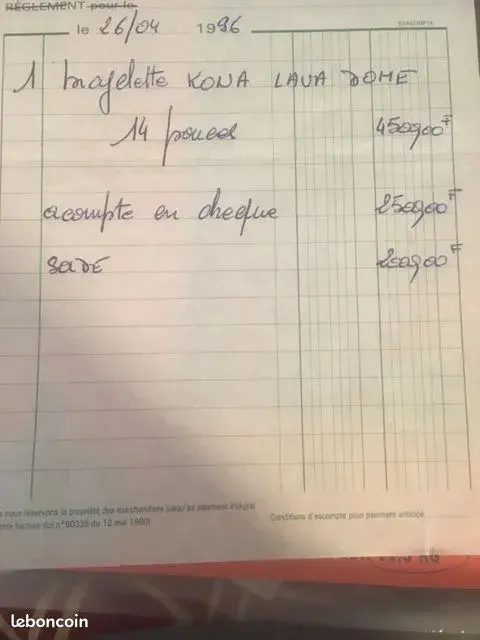 RÈGLEMENT pour le
le 26/04 1996
EXACOMPTA
1 KONA LAVA DOME
14 pouces 4500,00 F
acompte en cheque 2500,00 F
2000,00 F
nous réservons la propriété des marchandises jusqu'au paiement intégral
facture (loi n°80335 du 12 mai 1980)
Conditions d'escompte pour paiement anticipé
leboncoin